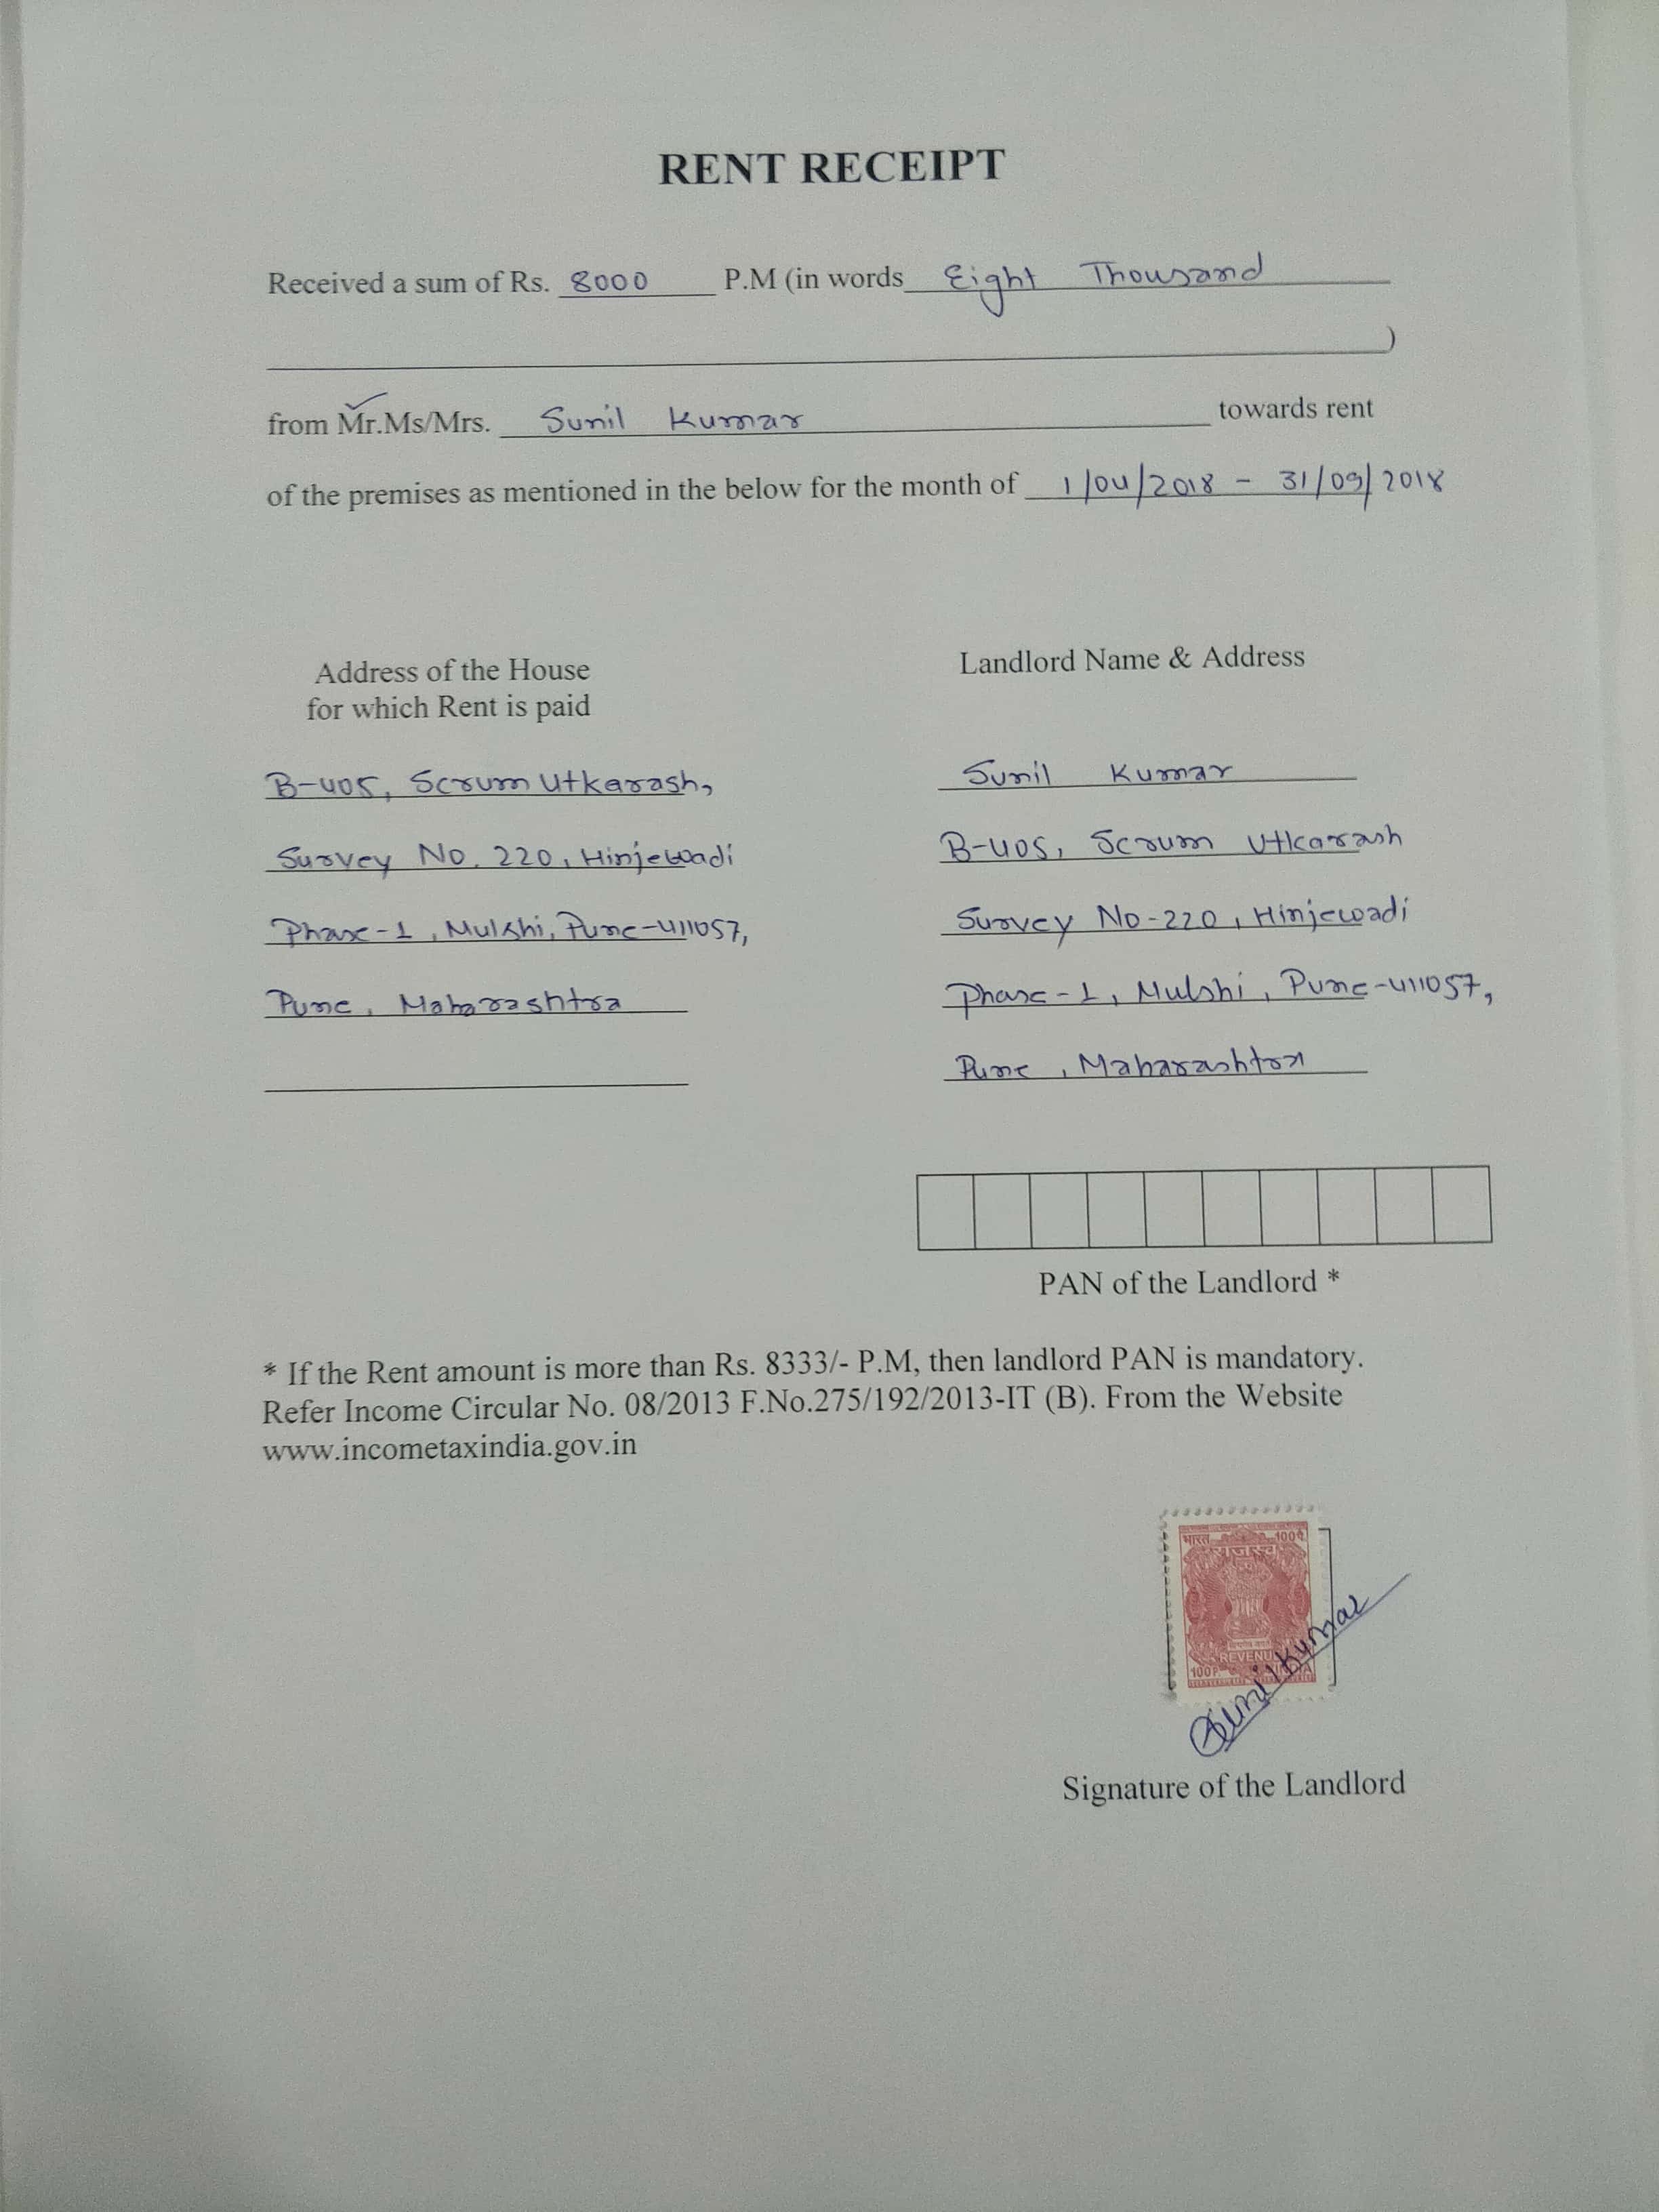 RENT RECEIPT
Received a sum of Rs. 8000 P.M (in words Eight Thousand
)
from Mr.Ms/Mrs. Sunil Kumar towards rent
of the premises as mentioned in the below for the month of 1/04/2018 - 31/09/2018
Address of the House
for which Rent is paid
B-405, Scrum Utkarash,
Survey No. 220, Hinjewadi
Phase-1, Mulshi, Pune-411057,
Pune, Maharashtra
Landlord Name & Address
Sunil Kumar
B-405, Scrum Utkarash
Survey No-220, Hinjewadi
Phase-1, Mulshi, Pune-411057,
Pune, Maharashtra
PAN of the Landlord *
* If the Rent amount is more than Rs. 8333/- P.M, then landlord PAN is mandatory.
Refer Income Circular No. 08/2013 F.No.275/192/2013-IT (B). From the Website
www.incometaxindia.gov.in
भारत 100प
राजस्व
REVENUE
100P
Sunil Kumar
Signature of the Landlord